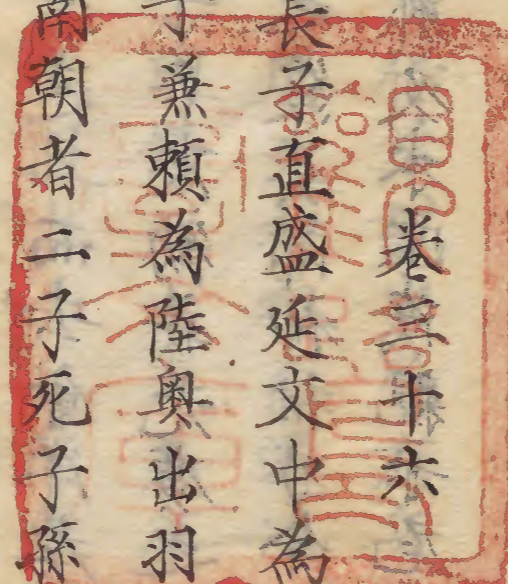 卷三十六
長子直盛延文中為
子兼頼為陸奥出羽
南朝者二子死子孫